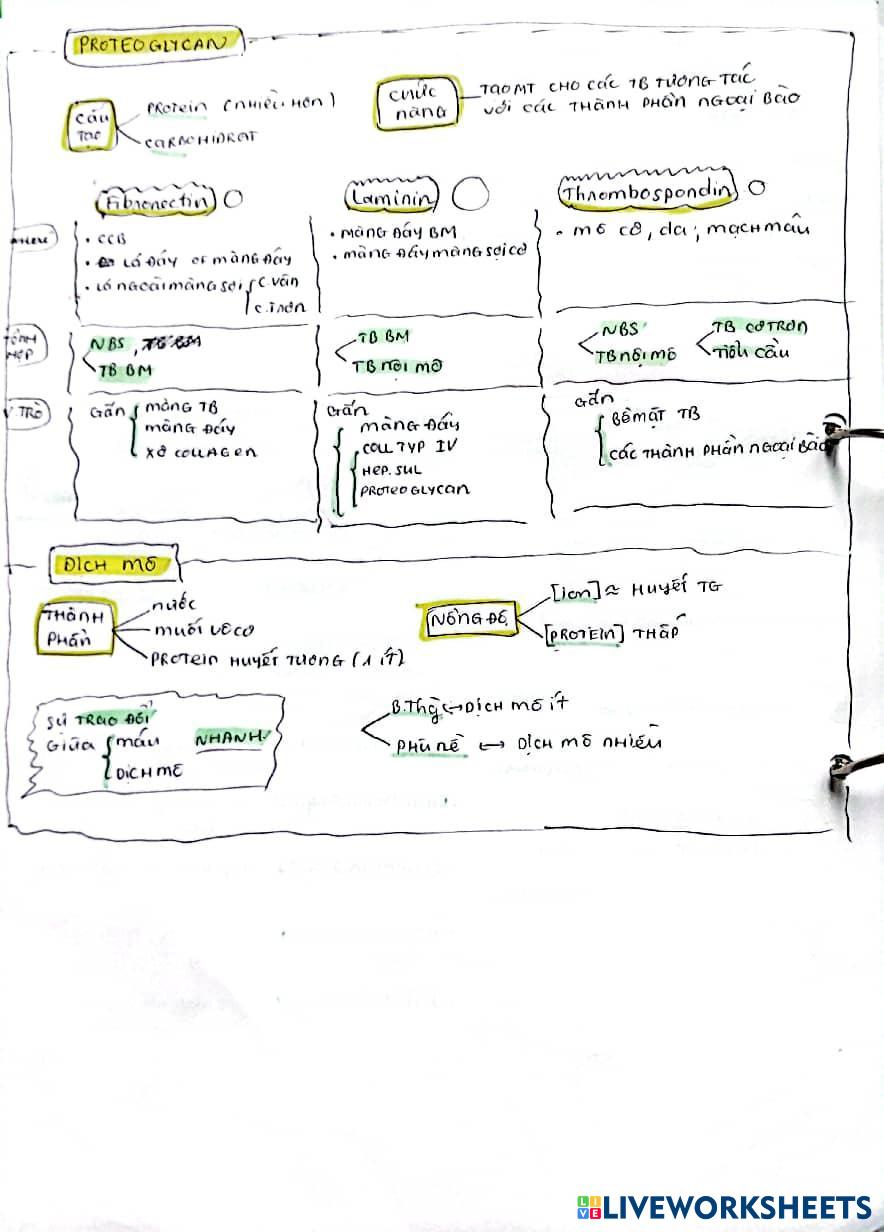 PROTEOGLYCAN
CẤU TẠO
PROTEIN (NHIỀU HƠN)
CARBOHIDRAT
CHỨC NĂNG
TẠO MT CHO CÁC TB TƯƠNG TÁC
VỚI CÁC THÀNH PHẦN NGOẠI BÀO
Fibronectin
Laminin
Thrombospondin
WHERE
• CCB
• LÁ ĐÁY OF MÀNG ĐÁY
• LÁ NGOÀI MÀNG SỢI
C. VÂN
C. TRƠN
• MÀNG ĐÁY BM
• MÀNG ĐÁY MÀNG SỢI CƠ
• MÔ CƠ, DA; MẠCH MÁU
TỔNG HỢP
NBS,
TB BM
TB BM
TB NỘI MÔ
NBS
TB NỘI MÔ
TB CƠ TRƠN
TIỂU CẦU
V.TRÒ
GẮN
MÀNG TB
MÀNG ĐÁY
XƠ COLLAGEN
GẮN
MÀNG ĐÁY
COLL TYP IV
HEP. SUL
PROTEOGLYCAN
GẮN
BỀ MẶT TB
CÁC THÀNH PHẦN NGOẠI BÀO
DỊCH MÔ
THÀNH PHẦN
NƯỚC
MUỐI VÔ CƠ
PROTEIN HUYẾT TƯƠNG (1 ÍT)
NỒNG ĐỘ
[ion] ≈ HUYẾT TG
[PROTEIN] THẤP
SỰ TRAO ĐỔI
GIỮA
MÁU
DỊCH MÔ
NHANH
B.Thg ↔ DỊCH MÔ ÍT
PHÙ NỀ ↔ DỊCH MÔ NHIỀU
LIVEWORKSHEETS